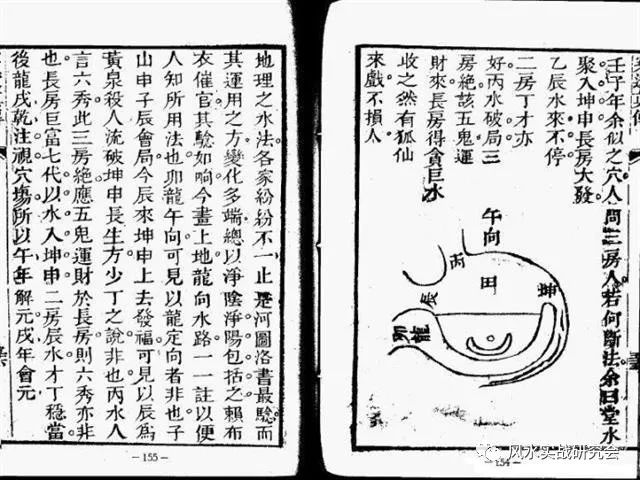 壬子年余似之穴人問三房人若何斷法余曰堂水
聚入坤申長房大發
乙辰水來不停
二房丁才亦
好丙水破局三
房絕該五鬼運
財來長房得貪巨水
收之然有狐仙
來戲不損人
午向
丙
田
坤
辰
卯龍
－154－
地理之水法各家紛紛不一止是河圖洛書最騐而
其運用之方變化多端總以淨陰淨陽包括之賴布
衣催官其騐如响今畫上地龍向水路一一註以便
人知所用法也卯龍午向可見以龍定向者非也子
山申子辰會局今辰來坤申上去發福可見以辰為
黃泉殺人流破坤申長生方少丁之說非也丙水人
言六秀此三房絕應五鬼運財於長房則六秀亦非
也長房巨富七代以水入坤申二房辰水才丁穩當
後龍戌乾注視穴塲所以午年解元戌年會元
－155－
风水实战研究会